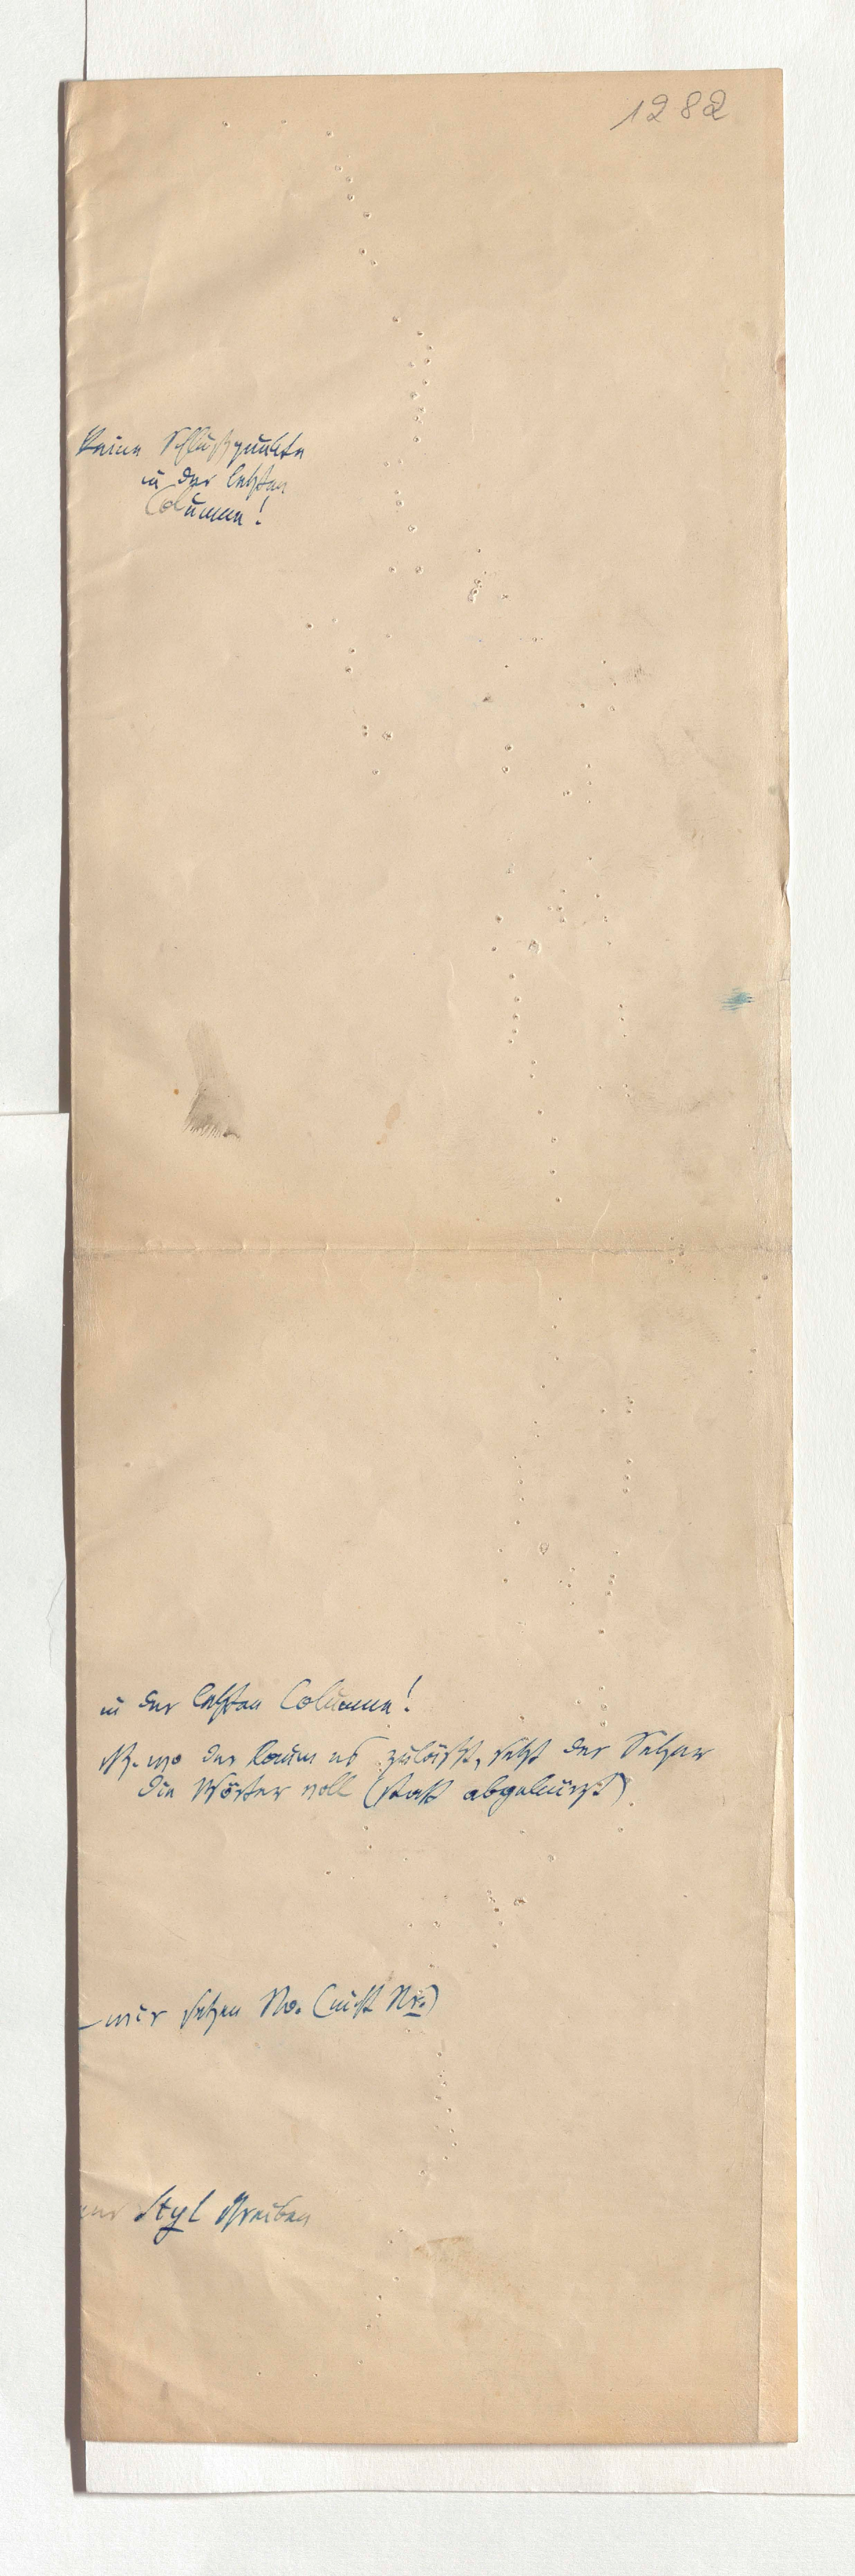 1282
Keine Schlußpunkte
in der letzten
Columne!
in der letzten Columne!
NB. wo der Raum es zuläßt, setzt der Setzer
die Wörter voll (statt abgekürzt)
setzen No. (nicht Nr.)
Styl schreiben